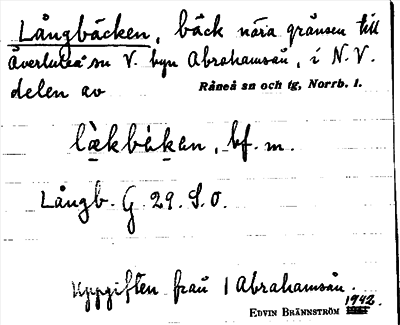 Långbäcken, bäck nära gränsen till
Överluleå sn V. byn Abrahamsån, i N.V.
delen av Råneå sn och tg, Norrb. l.
lækbäkan, bf. m.
Långb. G 29. S.O.
Uppgiften från 1 Abrahamsån.
1942.
EDVIN BRÄNNSTRÖM